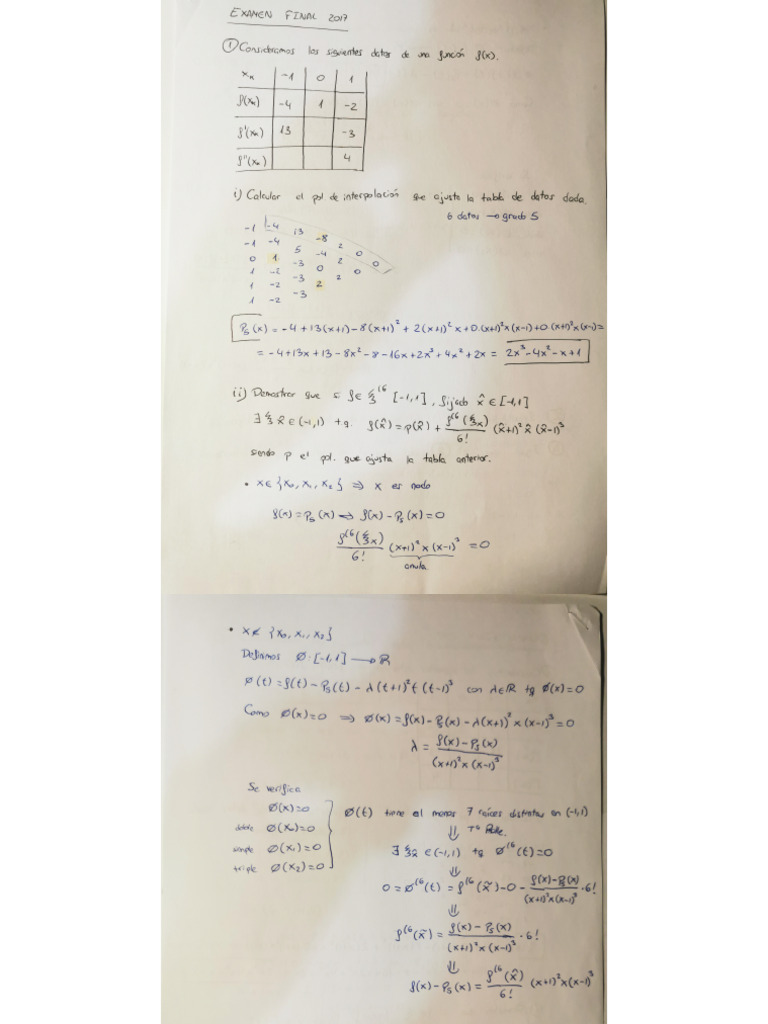 EXAMEN FINAL 2017
① Consideramos los siguientes datos de una función f(x).
xₙ | -1 | 0 | 1
f(xₙ) | -4 | 1 | -2
f'(xₙ) | 13 | | -3
f''(xₙ) | | | 4
i) Calcular el pol de interpolación que ajuste la tabla de datos dada.
6 datos → grado 5
-1 -4 13 -8 2 0 0
-1 -4 5 -4 2 0
0 1 -3 0 2
1 -2 -3 2
1 -2 -3
1 -2
P₅(x) = -4+13(x+1)-8(x+1)²+2(x+1)²x+0·(x+1)²x(x-1)+0·(x+1)²x(x-1)²=
= -4+13x+13-8x²-8-16x+2x³+4x²+2x = 2x³-4x²-x+1
ii) Demostrar que si f∈ξ⁽⁶ [-1,1], fijado x̂∈[-1,1]
∃ ξx̂∈(-1,1) t.q. f(x̂)=p(x̂)+ f⁽⁶(ξx)/6! (x̂+1)²x̂(x̂-1)³
siendo p el pol. que ajusta la tabla anterior.
• x∈{x₀,x₁,x₂} ⇒ x es nodo
f(x)=P₅(x) ⇒ f(x)-P₅(x)=0
f⁽⁶(ξx)/6! (x+1)²x(x-1)³ =0
anula
• x∉{x₀,x₁,x₂}
Definimos Ø:[-1,1] → ℝ
Ø(t)=f(t)-P₅(t)-λ(t+1)²t(t-1)³ con λ∈ℝ tq Ø(x)=0
Como Ø(x)=0 ⇒ Ø(x)=f(x)-P₅(x)-λ(x+1)²x(x-1)³=0
λ = f(x)-P₅(x)/(x+1)²x(x-1)³
Se verifica
Ø(x)=0
doble Ø(x₀)=0
simple Ø(x₁)=0
triple Ø(x₂)=0
Ø(t) tiene al menos 7 raíces distintas en (-1,1)
⇓ Tª Rolle.
∃ ξx̃∈(-1,1) tq Ø⁽⁶(t)=0
⇓
0=Ø⁽⁶(t)=f⁽⁶(x̃)-0- f(x)-P₅(x)/(x+1)²x(x-1)³ ·6!
⇓
f⁽⁶(x̃)= f(x)-P₅(x)/(x+1)²x(x-1)³ ·6!
⇓
f(x)-P₅(x)= f⁽⁶(x̂)/6! (x+1)²x(x-1)³